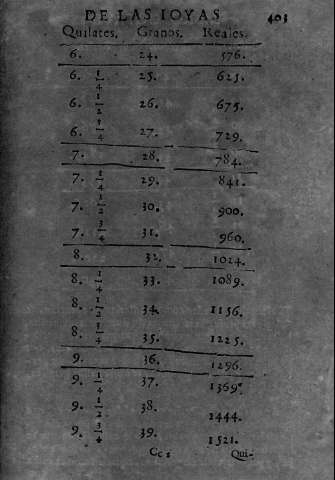 DE LAS IOYAS 403
Quilates. Granos. Reales.
6. 24. 576.
6. 1/4 25. 625.
6. 1/2 26. 675.
6. 3/4 27. 729.
7. 28. 784.
7. 1/4 29. 841.
7. 1/2 30. 900.
7. 3/4 31. 960.
8. 32. 1024.
8. 1/4 33. 1089.
8. 1/2 34. 1156.
8. 3/4 35. 1225.
9. 36. 1296.
9. 1/4 37. 1369.
9. 1/2 38. 1444.
9. 3/4 39. 1521.
Cc 2 Qui-